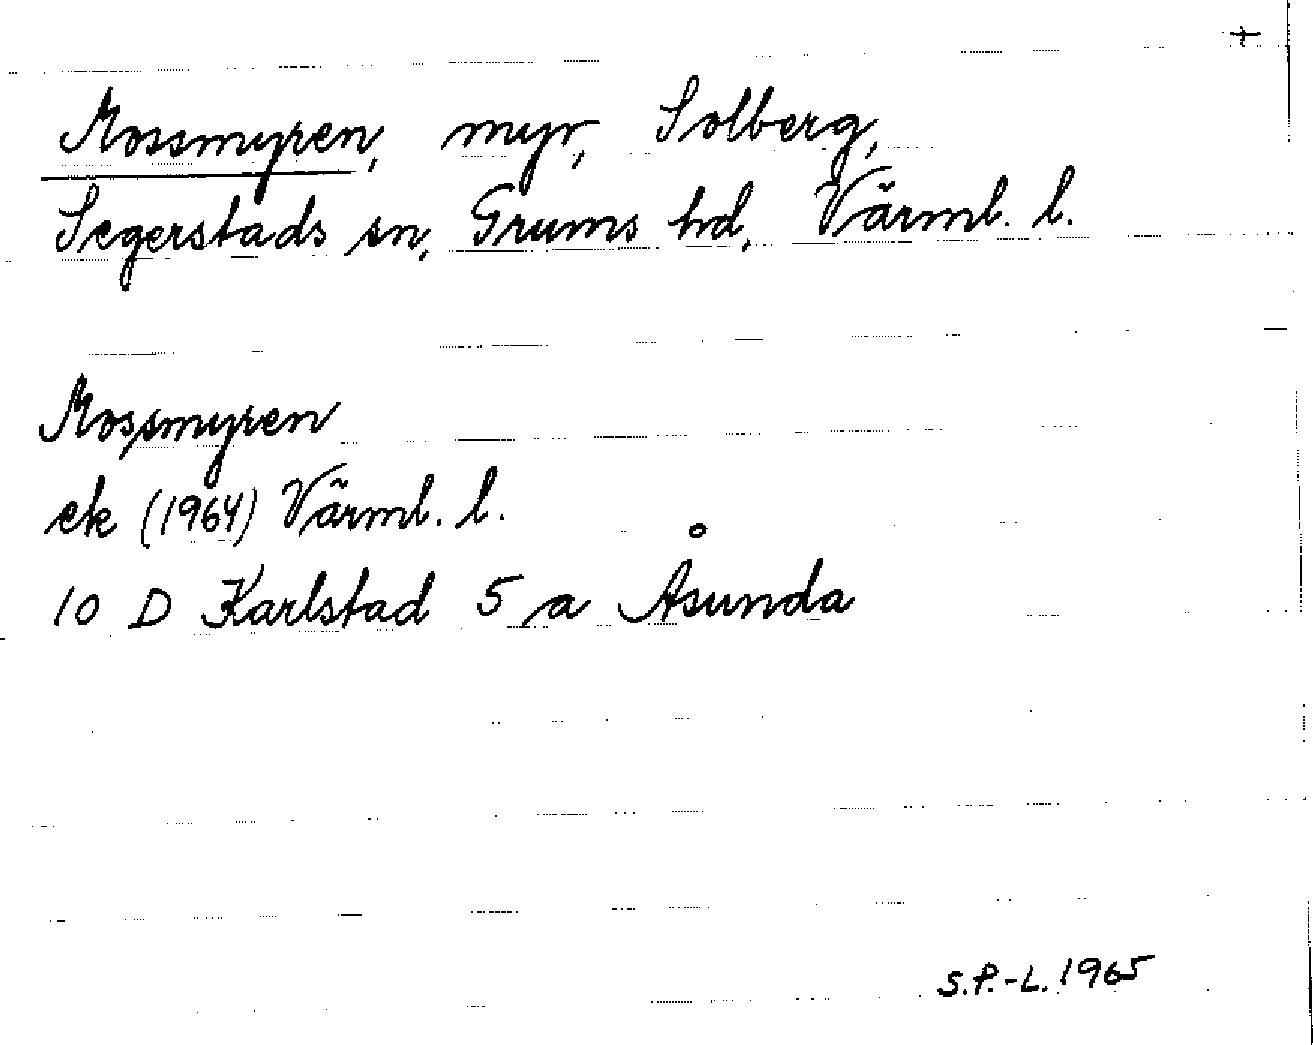 Mossmyren, myr, Solberg,
Segerstads sn, Grums hd, Värml. l.
Mossmyren
ek (1964) Värml. l.
10 D Karlstad 5 a Åsunda
S.P.-L. 1965